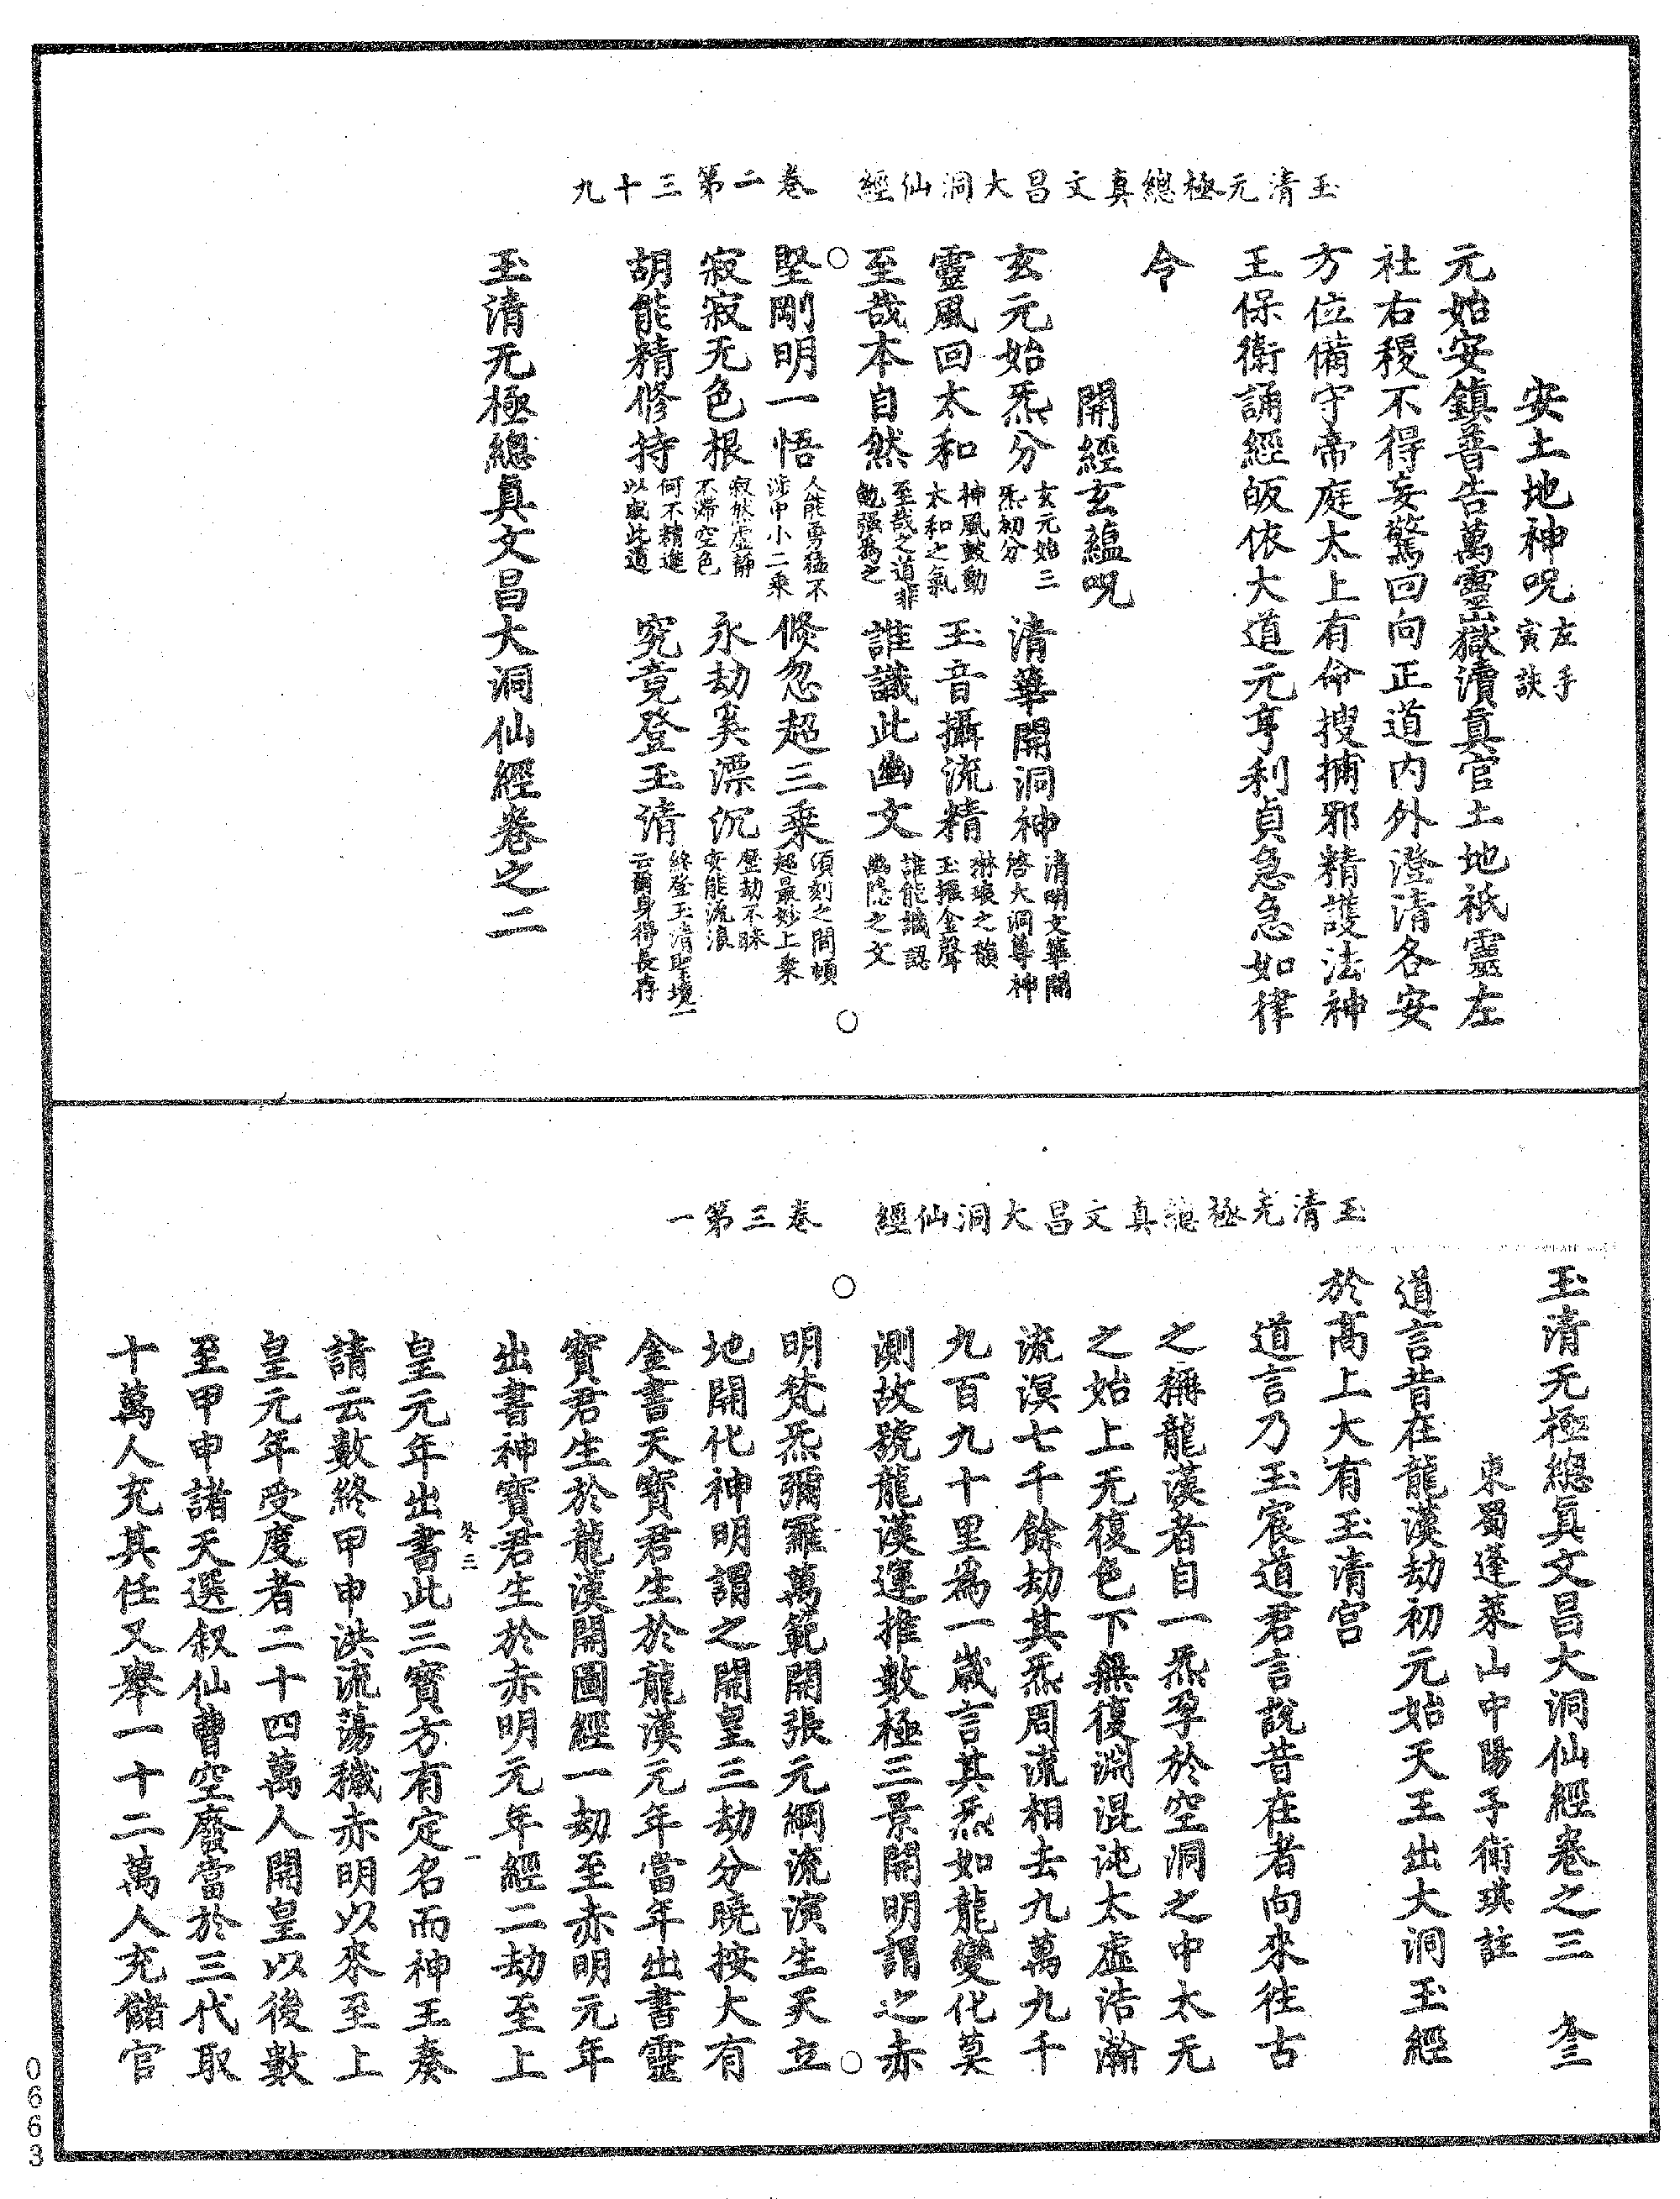 玉清无極總真文昌大洞仙經　卷二第三十九
安土地神呪左手寅訣
元始安鎮普告萬靈嶽瀆真官土地祇靈左
社右稷不得妄驚回向正道内外澄清各安
方位備守帝庭太上有命搜捕邪精護法神
王保衛誦經皈依大道元亨利貞急急如律
令
開經玄蘊呪
玄元始炁分玄元始三炁初分　清華開洞神清明文華開啓大洞尊神
靈風回太和神風鼓動太和之氣　玉音攝流精琳琅之韻玉振金聲
至哉本自然至哉之道非勉强為之　誰識此幽文誰能識認幽隱之文
堅剛明一悟人能勇猛不涉中小二乘　倐忽超三乘須刻之間頓超最妙上乘
寂寂无色根寂然虚静不滯空色　永劫奚漂沉歷劫不昧安能流浪
胡能精修持何不精進以成此道　究竟登玉清終登玉清聖境一云爾身得長存
玉清无極總真文昌大洞仙經卷之二
玉清无極總真文昌大洞仙經　卷三第一
玉清无極總真文昌大洞仙經卷之三　叄三
東蜀蓬萊山中陽子衛琪註
道言昔在龍漢劫初元始天王出大洞玉經
於高上大有玉清宫
道言乃玉宸道君言說昔在者向來往古
之稱龍漢者自一炁孕於空洞之中太无
之始上无復色下無復淵混沌太虚浩瀚
流溟七千餘劫其炁周流相去九萬九千
九百九十里為一歲言其炁如龍變化莫
測故號龍漢運推數極三景開明謂之赤
明梵炁彌羅萬範開張元綱流演生天立
地開化神明謂之開皇三劫分曉按大有
金書天寶君生於龍漢元年當年出書靈
寶君生於龍漢開圖經一劫至赤明元年
出書神寶君生於赤明元年經二劫至上
叄三
皇元年出書此三寶方有定名而神王奏
請云數終甲申洪流蕩穢赤明以來至上
皇元年受度者二十四萬人開皇以後數
至甲申諸天選叙仙曹空廢當於三代取
十萬人充其任又舉一十二萬人充儲官
0663